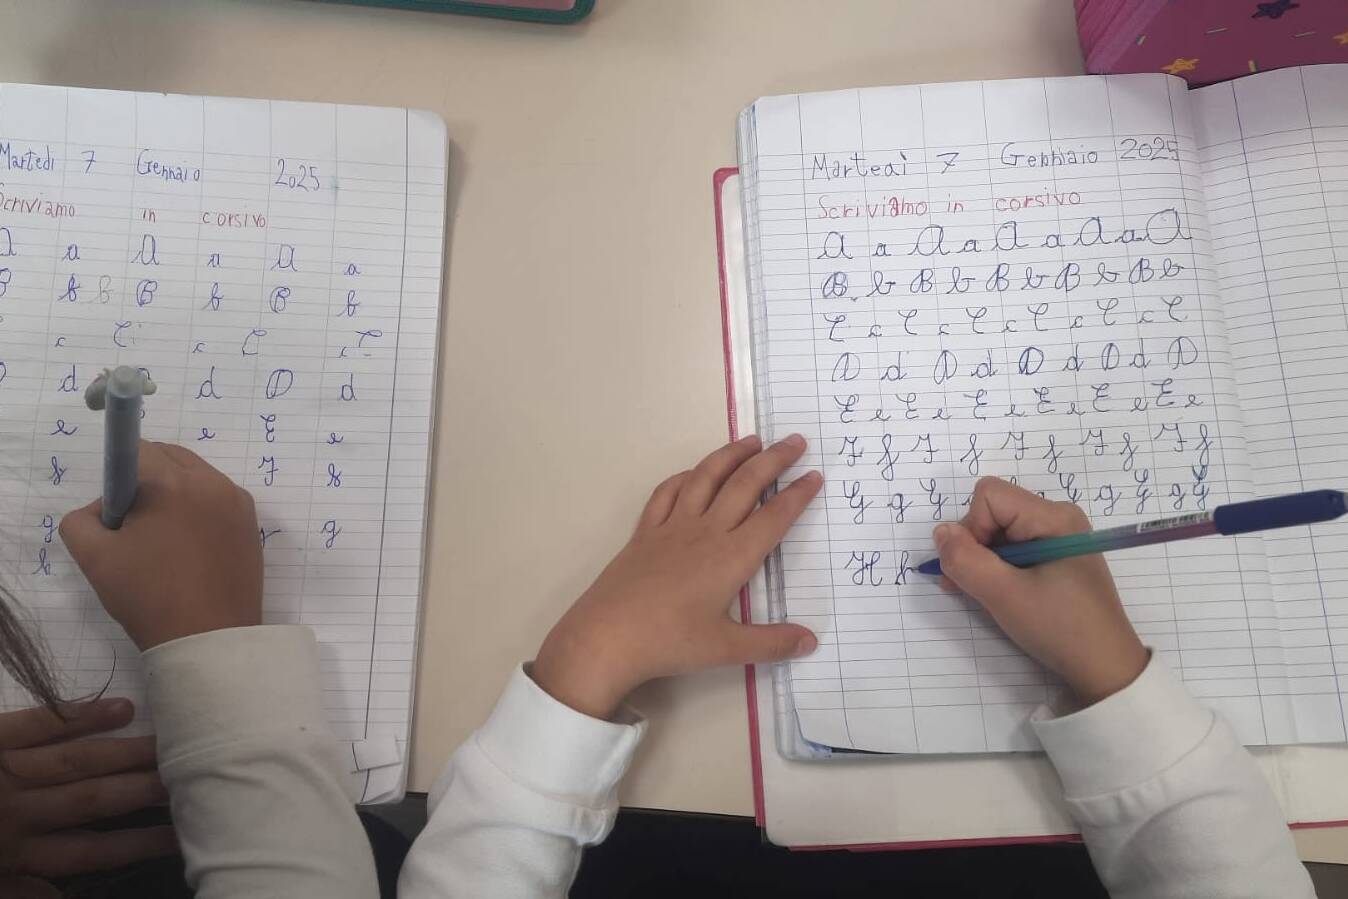 Martedi 7 Gennaio 2025
Scriviamo in corsivo
a A a A a
b b B b B b
c C c C c C
d d D d
e e E e
f F f
g g
h
Marteaì 7 Gennaio 2025
Scriviamo in corsivo
A a A a A a A a A
B b B b B b B b B b
C c C c C c C c C c C
D d D d D d D d D
E e E e E e E e E e E e
F f F f F f F f F f
G g G g G g G g G
H h